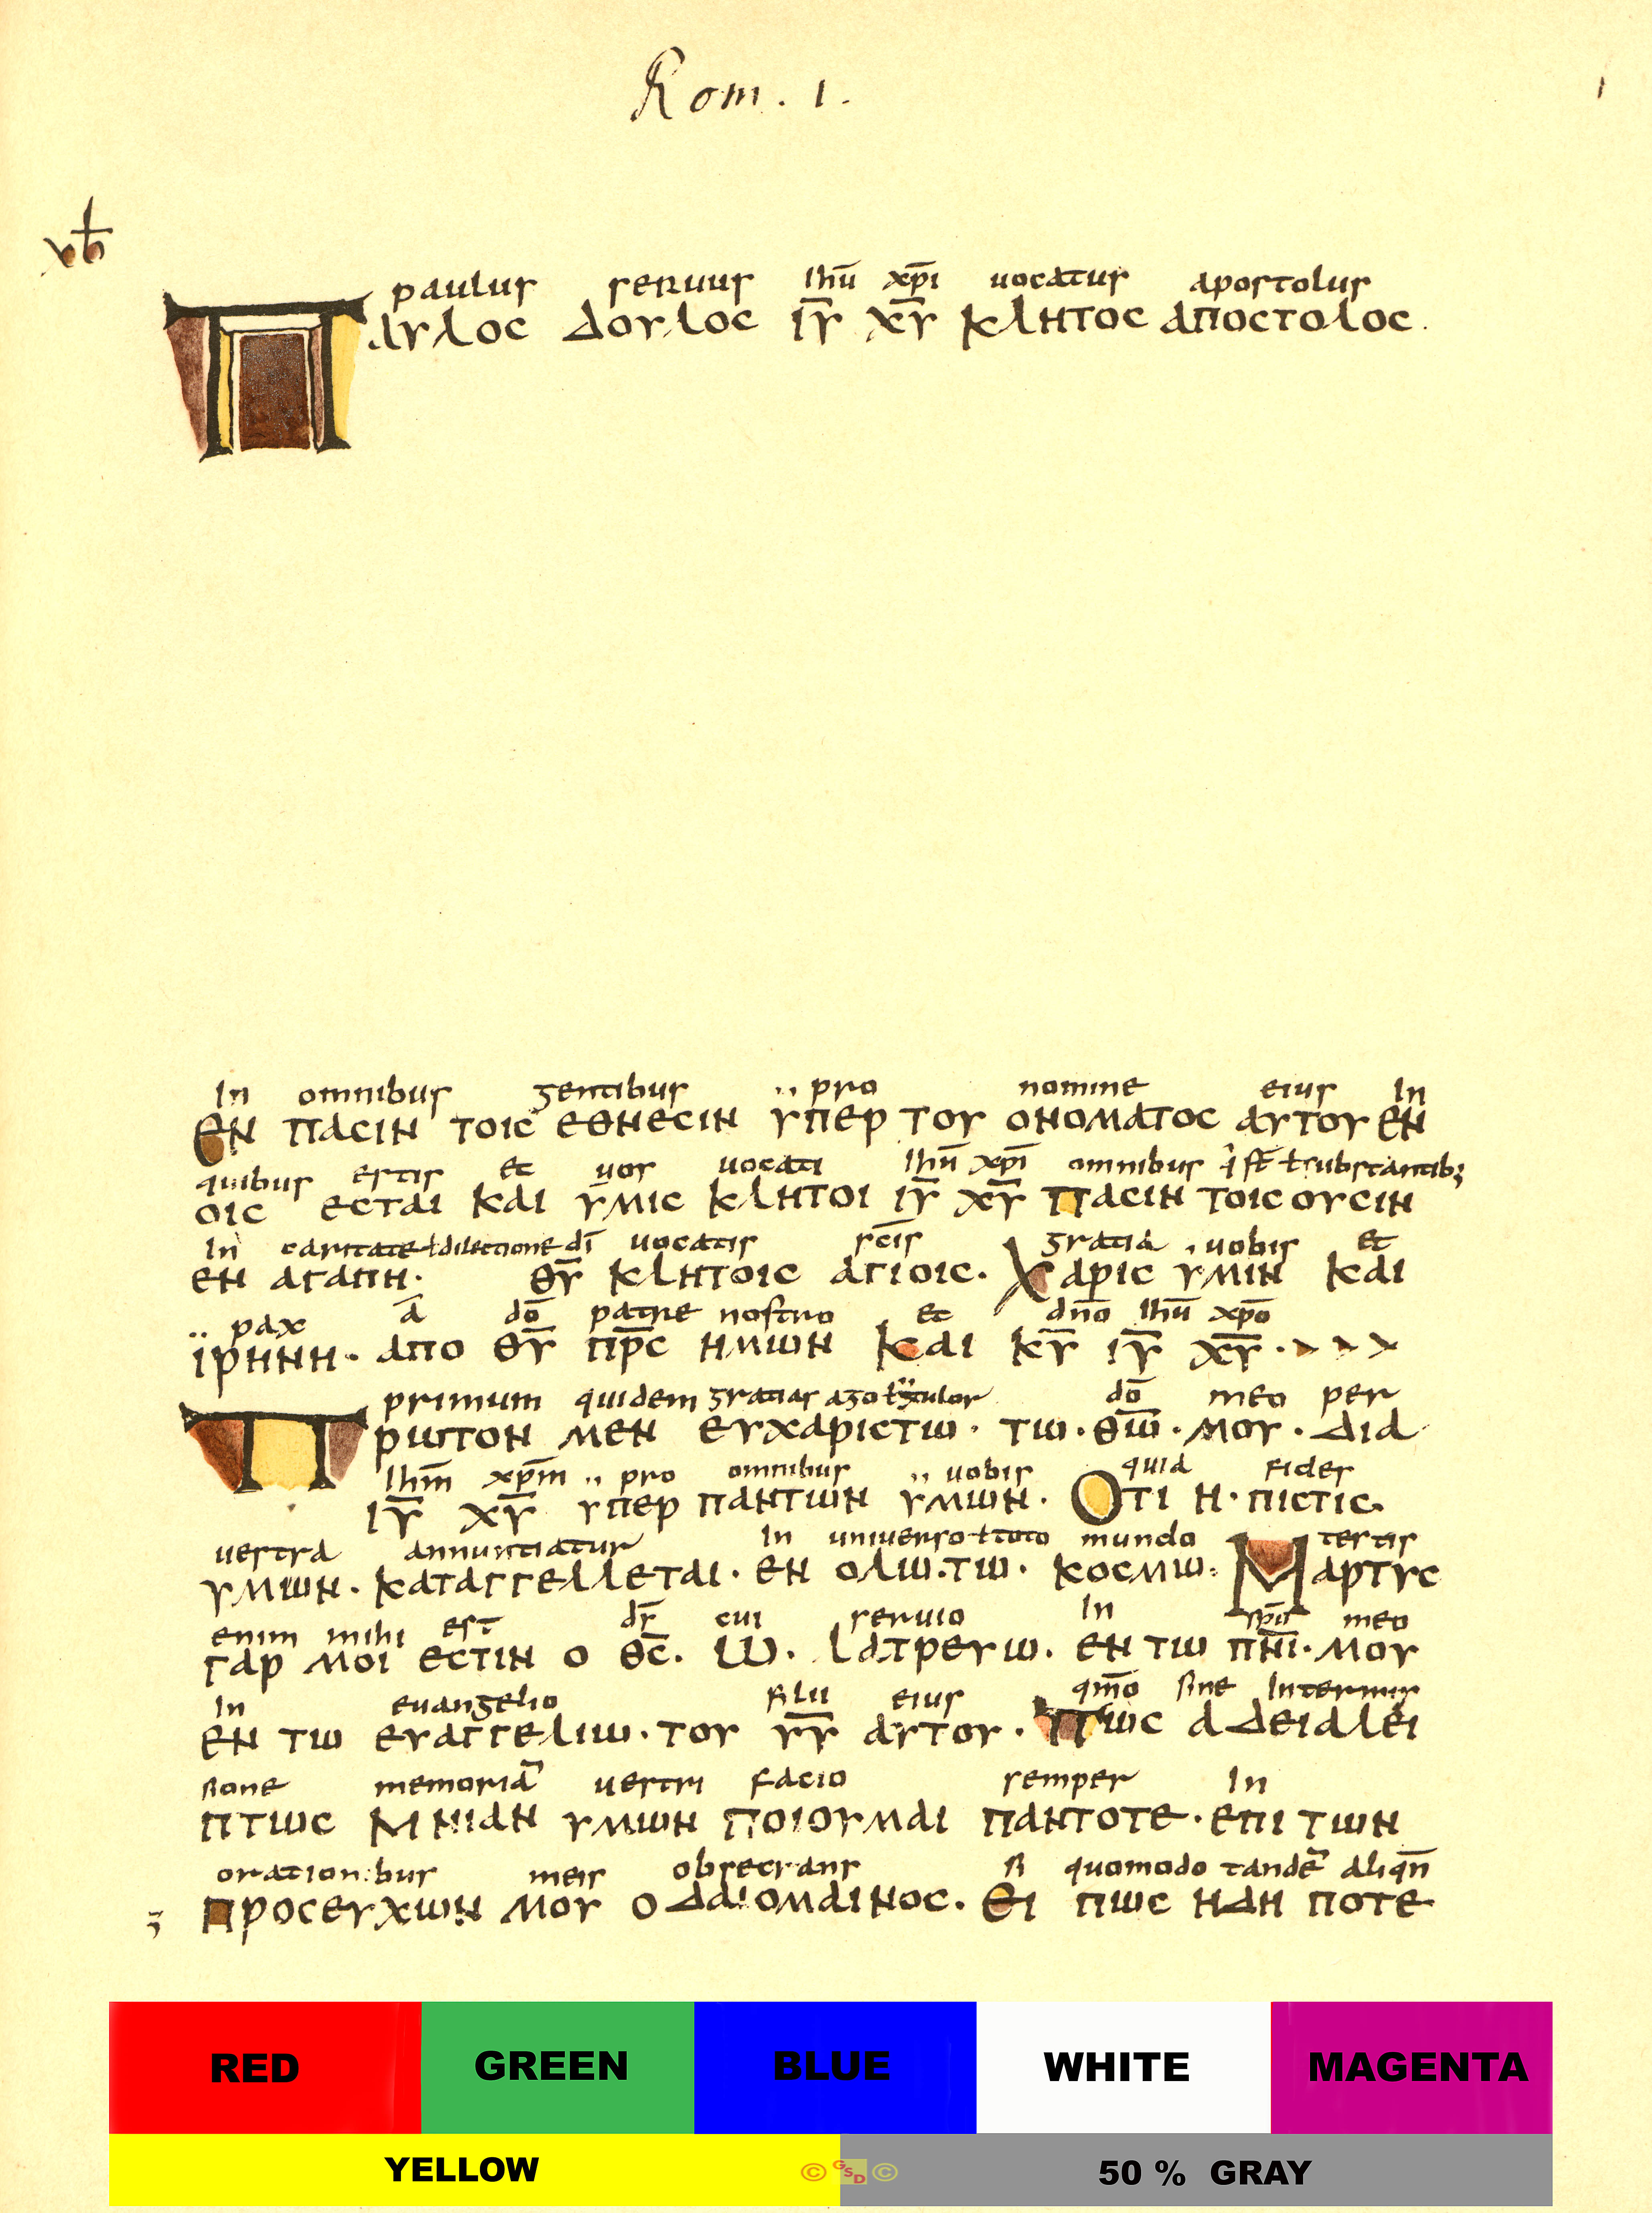 Rom. 1.
1
paulus seruus ihū xp̄i uocatus apostolus
ΠΑΥΛΟC ΔΟΥΛΟC ΙΥ̅ ΧΥ̅ ΚΛΗΤΟC ΑΠΟCΤΟΛΟC.
In omnibus gentibus pro nomine eius In
ΕΝ ΠΑCΙΝ ΤΟΙC ΕΘΝΕCΙΝ ΥΠΕΡ ΤΟΥ ΟΝΟΜΑΤΟC ΑΥΤΟΥ ΕΝ
quibus estis et uos uocati ihū xp̄i omnibus q̇ st̄ ł substantib;
ΟΙC ΕCΤΑΙ ΚΑΙ ΥΜΙC ΚΛΗΤΟΙ ΙΥ̅ ΧΥ̅ ΠΑCΙΝ ΤΟΙC ΟΥCΙΝ
In caritate ł dilectione dī uocatis sc̄is gratia uobis et
ΕΝ ΑΓΑΠΗ· ΘΥ̅ ΚΛΗΤΟΙC ΑΓΙΟΙC· ΧΑΡΙC ΥΜΙΝ ΚΑΙ
pax ā dō patre nostro et dn̄o ihū xp̄o
ΙΡΗΝΗ· ΑΠΟ ΘΥ̅ ΠΡ̅C ΗΜΩΝ ΚΑΙ ΚΥ̅ ΙΥ̅ ΧΥ̅·> > >
primum quidem gratias ago dō meo per
ΠΡΩΤΟΝ ΜΕΝ ΕΥΧΑΡΙCΤΩ· ΤΩ·ΘΩ̅·ΜΟΥ·ΔΙΑ
ihm̄ xpm̄ pro omnibus uobis quia fides
ΙΥ̅ ΧΥ̅ ΥΠΕΡ ΠΑΝΤΩΝ ΥΜΩΝ· ΟΤΙ Η·ΠΙCΤΙC
uestra annuntiatur In uniuerso ł toto mundo testis
ΥΜΩΝ·ΚΑΤΑΓΓΕΛΛΕΤΑΙ·ΕΝ ΟΛΩ·ΤΩ· ΚΟCΜΩ: ΜΑΡΤΥC
enim mihi est̄ dr̄ cui seruio In sp̄u meo
ΓΑΡ ΜΟΙ ΕCΤΙΝ Ο ΘC̅. Ω. ΛΑΤΡΕΥΩ. ΕΝ ΤΩ ΠΝΙ̅·ΜΟΥ
In euangelio filii eius qm̄o sine Intermis
ΕΝ ΤΩ ΕΥΑΓΓΕΛΙΩ·ΤΟΥ ΥΥ̅ ΑΥΤΟΥ· ΠΩC ΑΔΕΙΑΛΕΙ
sione memoriā uestri facio semper In
ΠΤΩC ΜΝΙΑΝ ΥΜΩΝ ΠΟΙΟΥΜΑΙ ΠΑΝΤΟΤΕ·ΕΠΙ ΤΩΝ
orationibus meis obsecrans si quomodo tandē aliqn̄
ΠΡΟCΕΥΧΩΝ ΜΟΥ Ο ΔΑΙΟΜΑΙΝΟC. ΕΙ ΠΩC ΗΔΗ ΠΟΤΕ
RED GREEN BLUE WHITE MAGENTA
YELLOW © GSD © 50 % GRAY